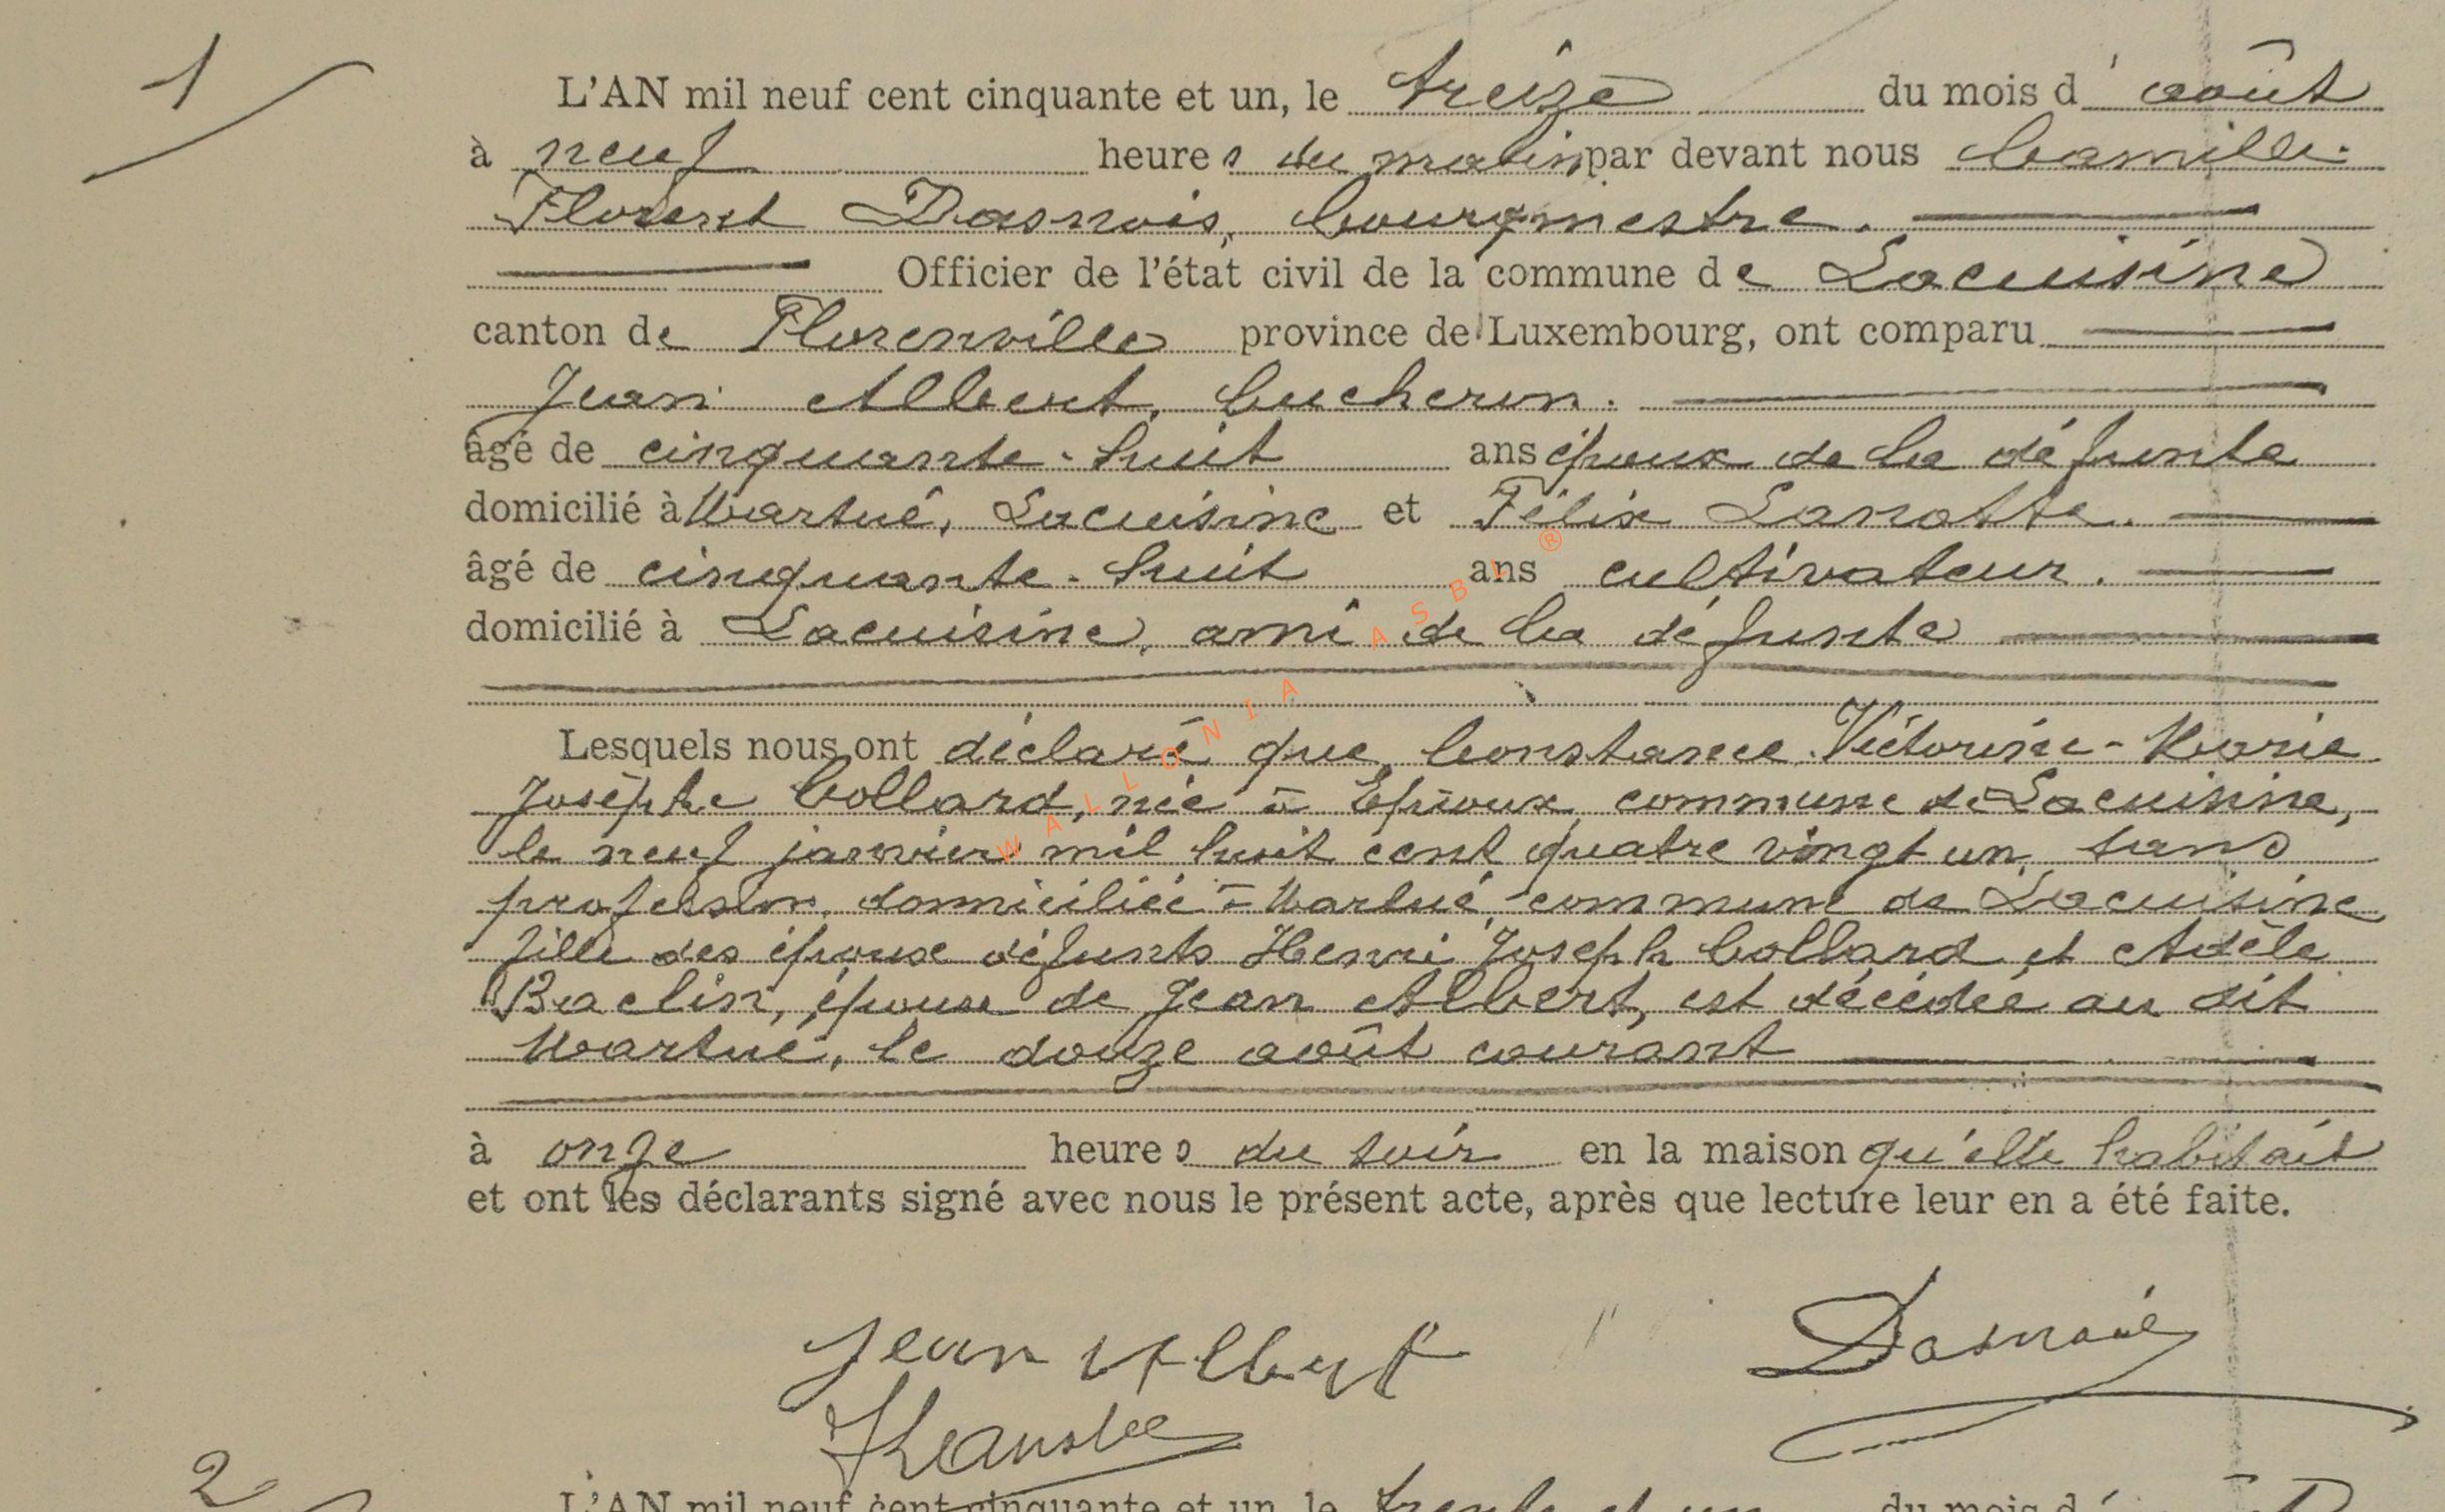 1
L'AN mil neuf cent cinquante et un, le treize du mois d'août
à neuf heures du matin par devant nous Camille
Florent Dasnois, bourgmestre.
Officier de l'état civil de la commune de Lacuisine
canton de Florenville province de Luxembourg, ont comparu
Jean Albert, bucheron.
âgé de cinquante-huit ans époux de la défunte
domicilié à Martué, Lacuisine et Félix Lanotte.
âgé de cinquante-huit ans cultivateur.
domicilié à Lacuisine, ami de la défunte
Lesquels nous ont déclaré que Constance Victorine-Marie
Josèphe Collard, née à Epioux, commune de Lacuisine,
le neuf janvier mil huit cent quatre vingt un, sans
profession, domiciliée à Martué, commune de Lacuisine
fille des époux défunts Henri Joseph Collard et Adèle
Baclin, épouse de Jean Albert, est décédée au dit
Martué, le douze août courant
à onze heures du soir en la maison qu'elle habitait
et ont les déclarants signé avec nous le présent acte, après que lecture leur en a été faite.
Jean Albert Dasnois
2
L'AN mil neuf cent cinquante et un, le trente et un du mois d'
WALLONIA ASBL ®